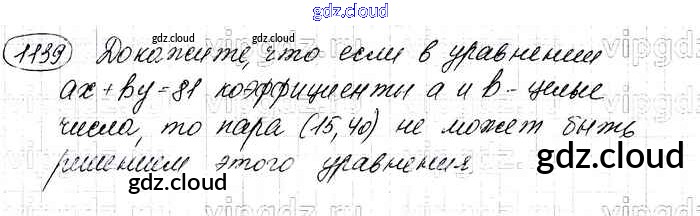 gdz.cloud
1139 Докажите, что если в уравнении
ax + by = 81 коэффициенты a и b - целые
числа, то пара (15, 40) не может быть
решением этого уравнения.
gdz.cloud
gdz.cloud
gdz.cloud
gdz.cloud